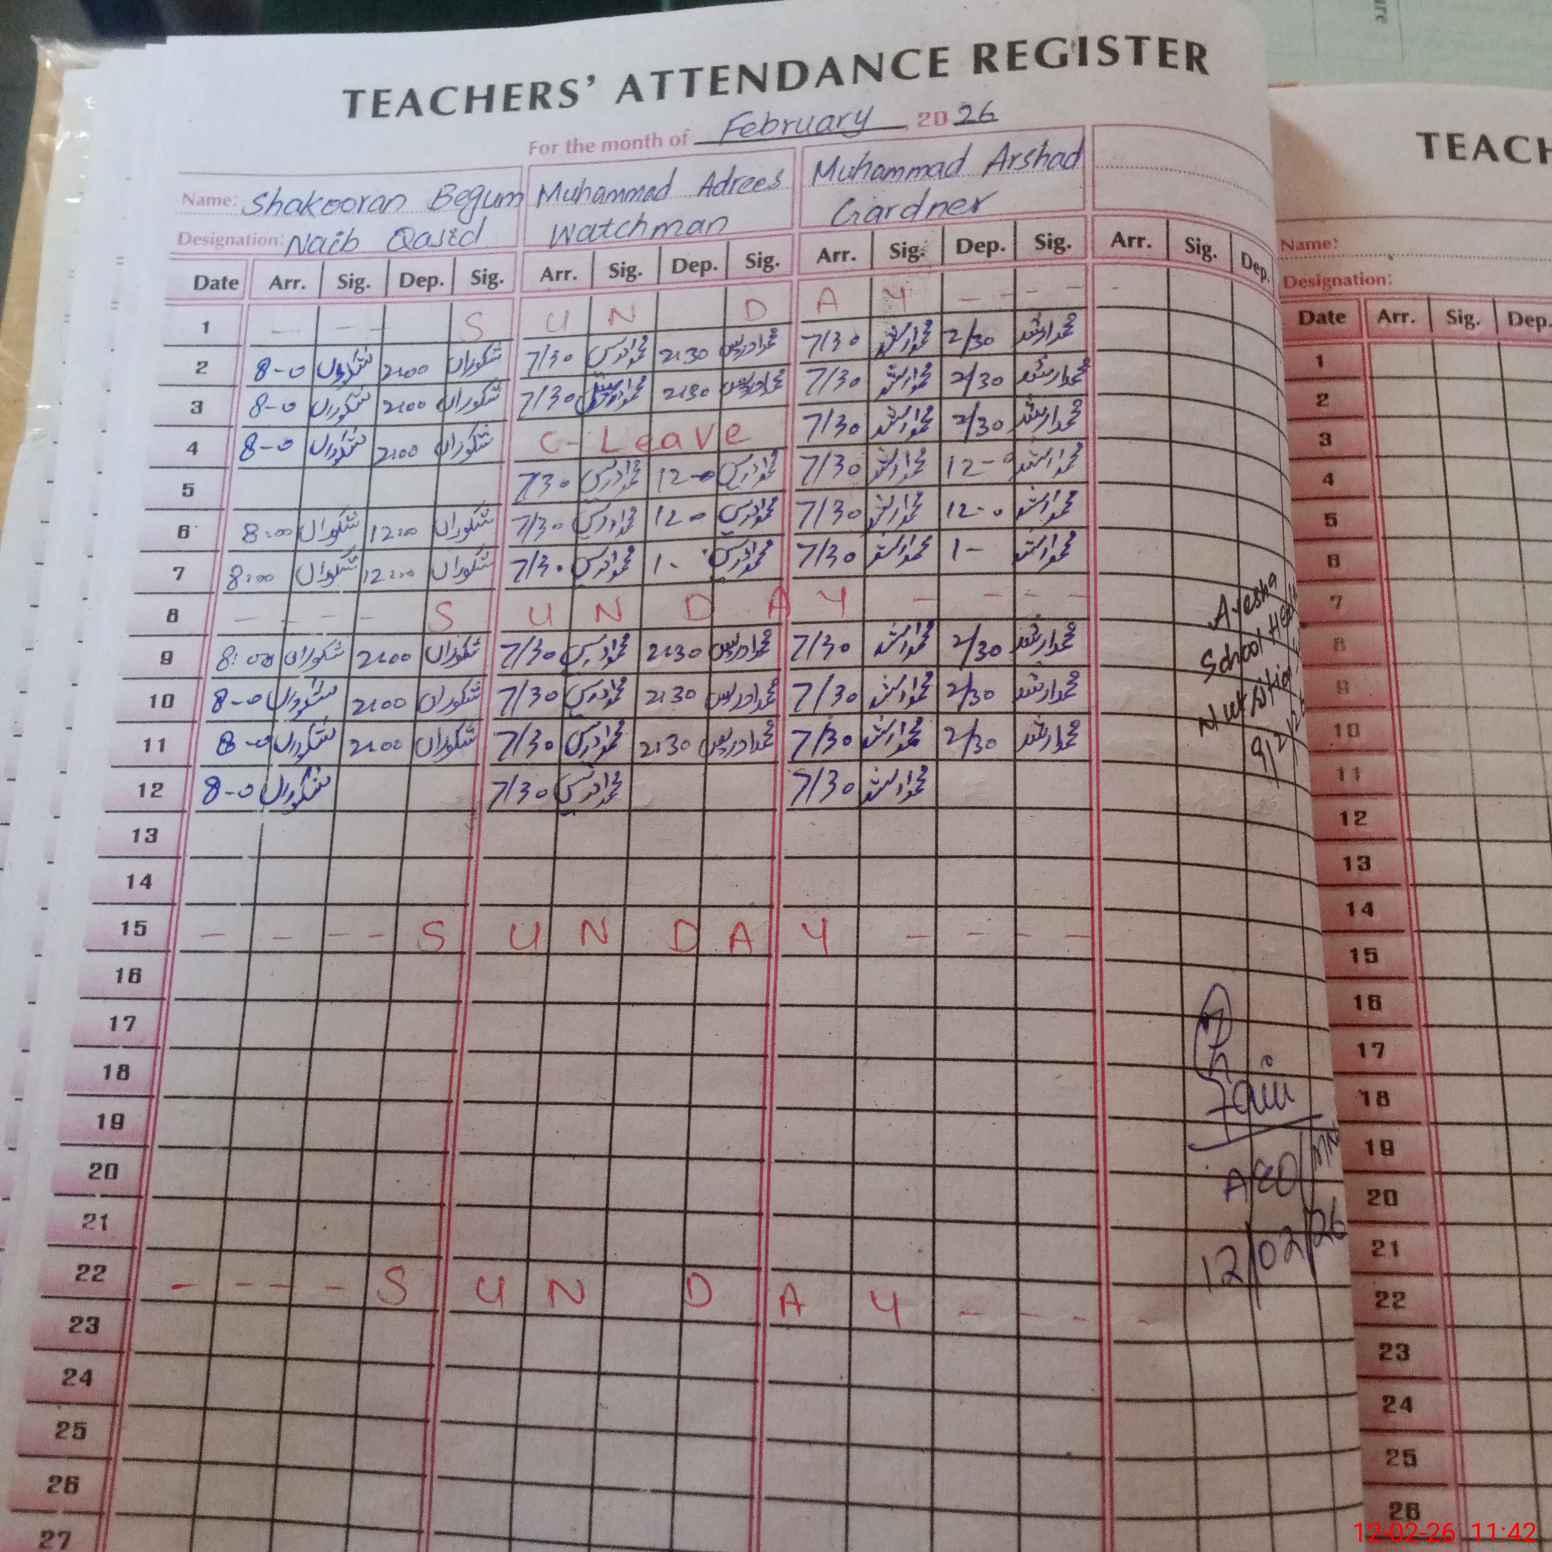 TEACHERS' ATTENDANCE REGISTER
For the month of February 2026
Name: Shakooran Begum Muhammad Adrees Muhammad Arshad
Designation: Naib Qasid Watchman Gardner
Date Arr. Sig. Dep. Sig. Arr. Sig. Dep. Sig. Arr. Sig. Dep. Sig. Arr. Sig. Dep.
1 - - - S U N D A Y - - - -
2 8-0 شکوراں 2:00 شکوراں 7/30 محمد ادریس 2:30 محمد ادریس 7/30 محمد ارشد 2/30 محمد ارشد
3 8-0 شکوراں 2:00 شکوراں 7/30 محمد ادریس 2:30 محمد ادریس 7/30 محمد ارشد 2/30 محمد ارشد
4 8-0 شکوراں 2:00 شکوراں C-Leave 7/30 محمد ارشد 2/30 محمد ارشد
5 730 محمد ادریس 12-0 محمد ادریس 7/30 محمد ارشد 12-0 محمد ارشد
6 8:00 شکوراں 12:00 شکوراں 7/30 محمد ادریس 12-0 محمد ادریس 7/30 محمد ارشد 12-0 محمد ارشد
7 8:00 شکوراں 12:00 شکوراں 7/30 محمد ادریس 1- محمد ادریس 7/30 محمد ارشد 1- محمد ارشد
8 - - - - S U N D A Y - - - -
9 8:00 شکوراں 2:00 شکوراں 7/30 محمد ادریس 2:30 محمد ادریس 7/30 محمد ارشد 2/30 محمد ارشد
10 8-0 شکوراں 2:00 شکوراں 7/30 محمد ادریس 2:30 محمد ادریس 7/30 محمد ارشد 2/30 محمد ارشد
11 8-0 شکوراں 2:00 شکوراں 7/30 محمد ادریس 2:30 محمد ادریس 7/30 محمد ارشد 2/30 محمد ارشد
12 8-0 شکوراں 7/30 محمد ادریس 7/30 محمد ارشد
13
14
15 - - - - S U N D A Y - - - -
16
17
18
19
20
21
22 - - - - S U N D A Y - - - -
23
24
25
26
27
Ayesha
School
AEO
12/02/26
TEACH
Name:
Designation:
Date Arr. Sig. Dep.
1
2
3
4
5
6
7
8
9
10
11
12
13
14
15
16
17
18
19
20
21
22
23
24
25
26
12-02-26 11:42